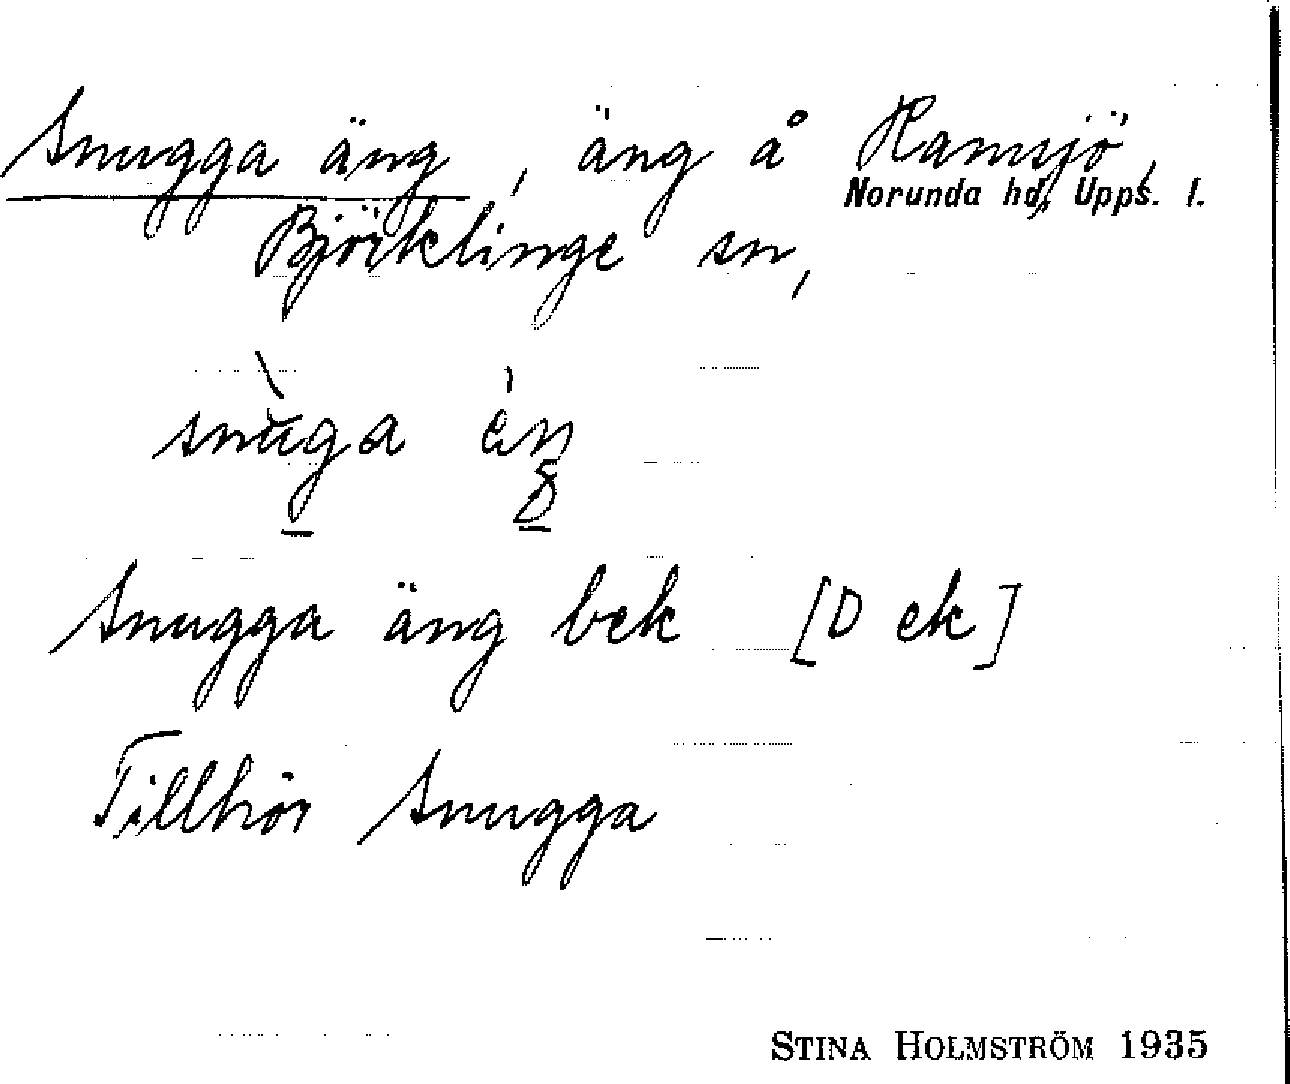 Snugga äng, äng å Ramsjö,
Norunda hd, Upps. l.
Björklinge sn,
Snugga äng bek [D ek]
Tillhör Snugga
STINA HOLMSTRÖM 1935